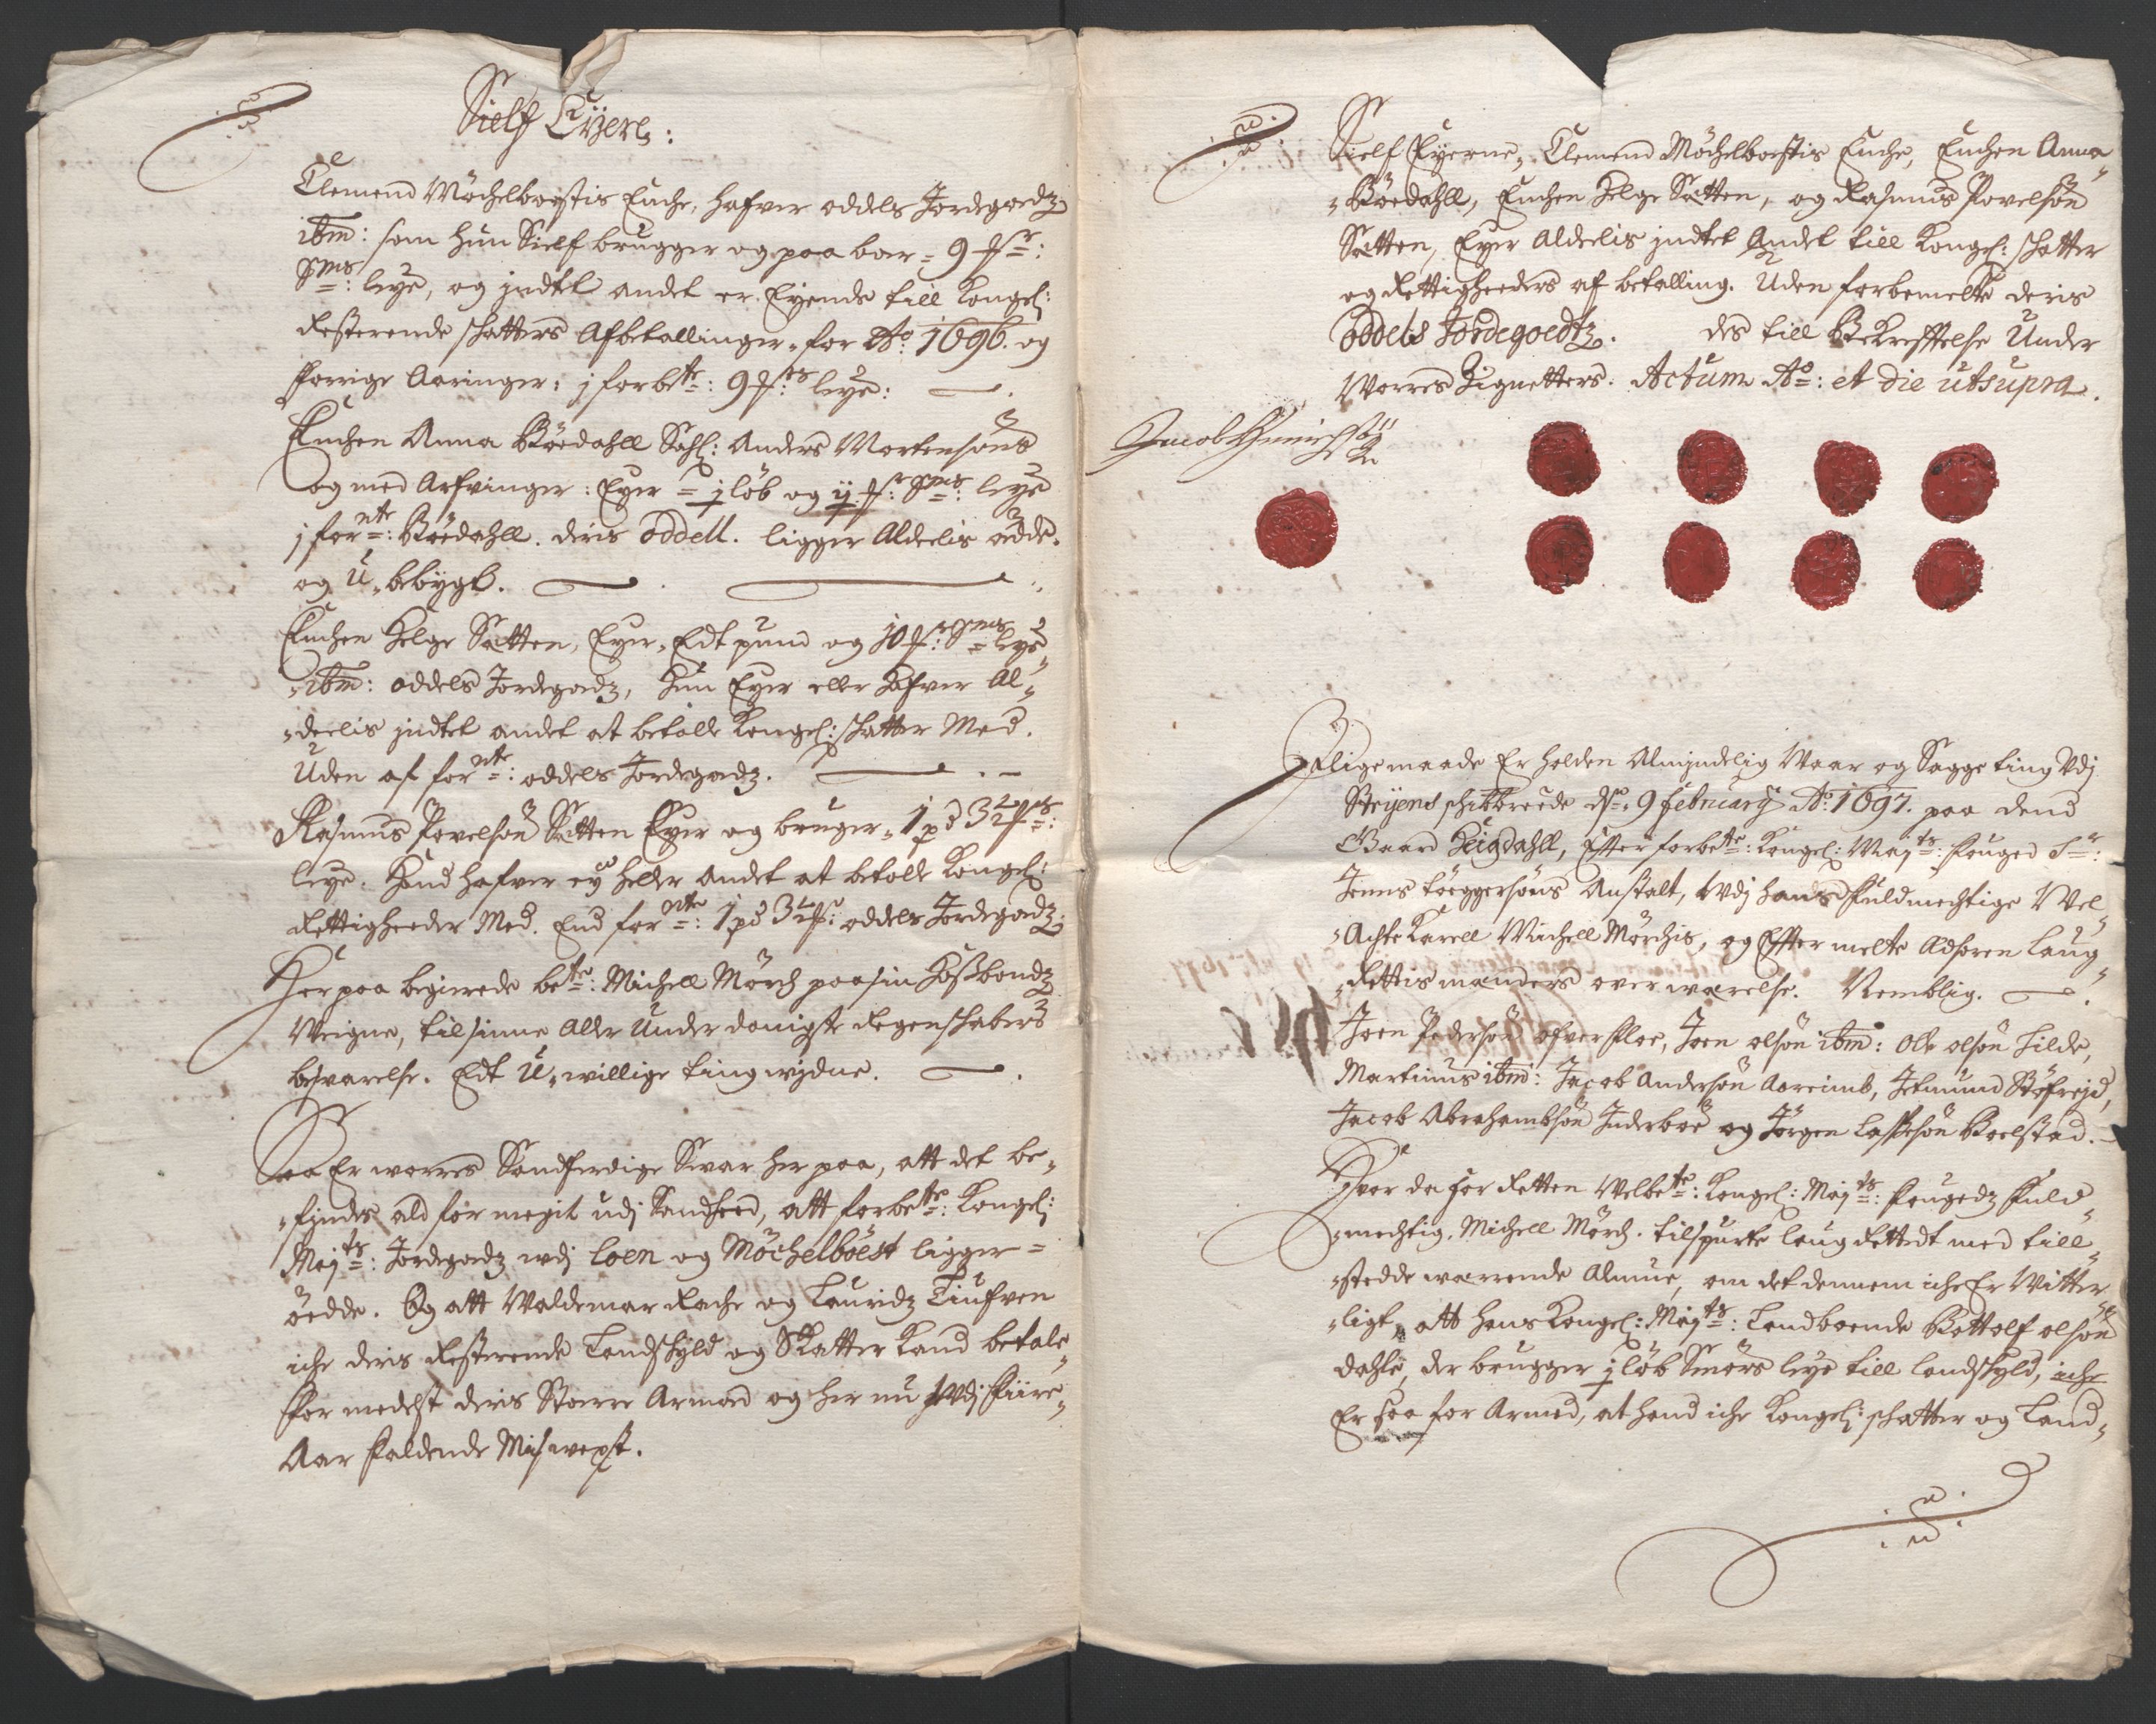 Sielf Eyere:
Clemend Möchelboestis Enche, hafver oddels Jordegoedz
ibm: som hun Sielf brugger og paa boer = 9 mr:
Sms: leye, og jndtet andet er Eyende till Kongel:
Resterende schatters Afbetallinger, for Ao: 1696. og
forrige Aaringer; j forbte: 9 mrs leye:
Enchen Anna Böedahll Sahl: Anders Mortensöns
og med Arfvinger: Eyer = j löb og ij mr: Sms: leye
j fornte: Böedahll. deris oddell. ligger Aldeelis ødde.
og U-bebygt.
Enchen Helge Sætten, Eyer, Edt pund og 10 mr: Sms leye
ibm: oddels Jordegodz, Hun Eyer eller Hafver Al-
deelis jndtet andet at betalle Kongel: schatter Med.
Uden af fornte: oddels Jordegodz.
Rasmus Povelsön Sætten Eyer og bruger, 1 pd 3½ mrs:
leye. Hand hafver ey heller andet at betalle Kongel:
Rettigheeder Med. End fornte: 1 pd 3½ mr: oddels Jordegodz:
Her paa begierede bete: Michell Mörch paa sin Hoßbondz
Weigne, til sinne Aller Underdanigste Regenschabers
besvarelse. Edt U-willige tingwidne.
Saa Er worres Sandferdige Swar her paa, att det be-
findes ald for megit udj Sandhed, att forbete: Kongel:
Majts: Jordegodz wdj Loen og Möchelböest ligger =
öedde. Og att Woldemar Rache og Lauridz Tiufven
iche deris Resterende Landschyld og Skatter kand betale
formedelst deris Storre Armod og her nu Wdj fiire
Aar faldende Miswext.
Sielf Eyerne, Clemend Möchelboestis Enche, Enchen Anna
Böedahll, Enchen Helge Sætten, og Rasmus Povelsön
Sætten, Eyer Aldeelis jndtet Andet till Kongel: schatter
og Rettigheeders af betalling. Uden forbemelte deris
Oddels Jordegoedtz. des till Bekrefftelse Under
Worres Zignetters. Actum Ao: et die utsupra.
Jacob Henrichsön
Jfligemaade Er holden Almindelig Waar og Sagge ting Udj
Stryens schibbreede dto: 9 February Ao: 1697. paa dend
Gaard Heigdahll, Effter forbete: Kongel: Majts: fouged Sr:
Jenns töeggersöns Anstalt, Wdj hands fuldmechtige Wel-
Achte Karell Michell Mörchis, og Effter melte Adsoren Laug-
Rettis mænders overwærelse. Nemblig.
Joen Pedersön ofverfloe, Joen olsön ibm: Ole olsön Tilde,
Martinus ibm: Jacob Andersön Aareimb, Jetmund Stöfreid,
Jacob Abrahambsön Jnderboe og Jörgen Lassesön Koelstad.
Hvor da for Retten Welbete: Kongel: Majts: fougedz fuld-
mechtig. Michell Mörch. tilspurte laug Rettedt med till-
stedde wærrende Almue, om det dennem iche Er Witter-
ligt, att hans Kongel: Majts: Landboende Bottolf olsön
Dahle, der brugger j löb Smörs leye till landschyld, iche
Er saa for Armed, at hand iche Kongel: schatter og Land-